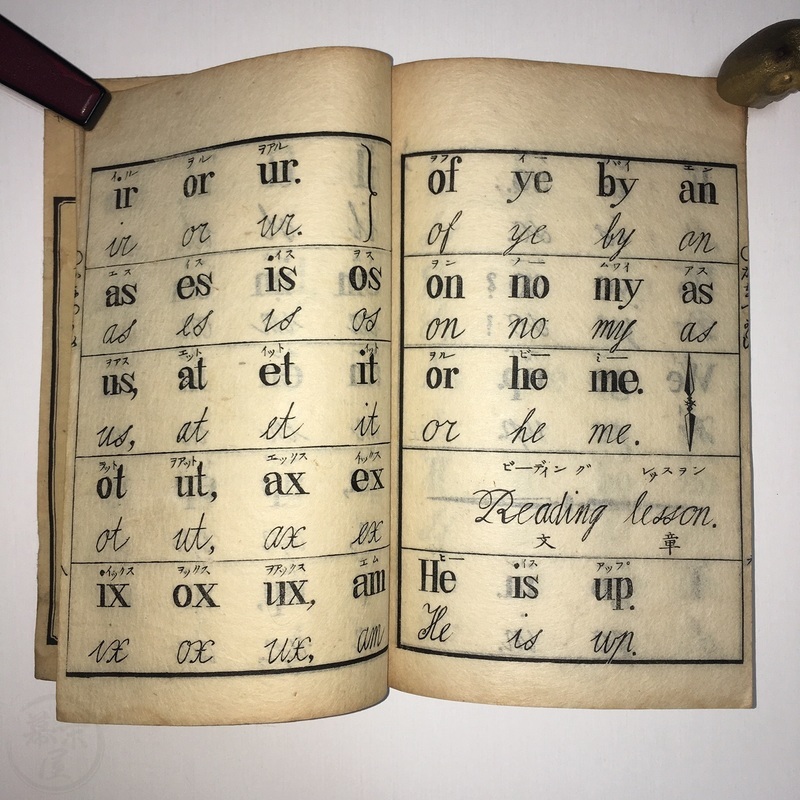 イル ヲル ヲアル
ir or ur.
ir or ur.
エス イス イス ヲス
as es is os
as es is os
ヲアス エット イット イット
us, at et it
us, at et it
ヲット ヲアット エックス イックス
ot ut, ax ex
ot ut, ax ex
イックス ヲックス ヲアックス エム
ix ox ux, am
ix ox ux, am
ヲフ イー バイ エン
of ye by an
of ye by an
ヲン ノー ムワイ アス
on no my as
on no my as
ヲル ヒー ミー
or he me.
or he me.
ビーディング レッスヲン
Reading lesson.
文 章
ヒー イス アップ
He is up.
He is up.